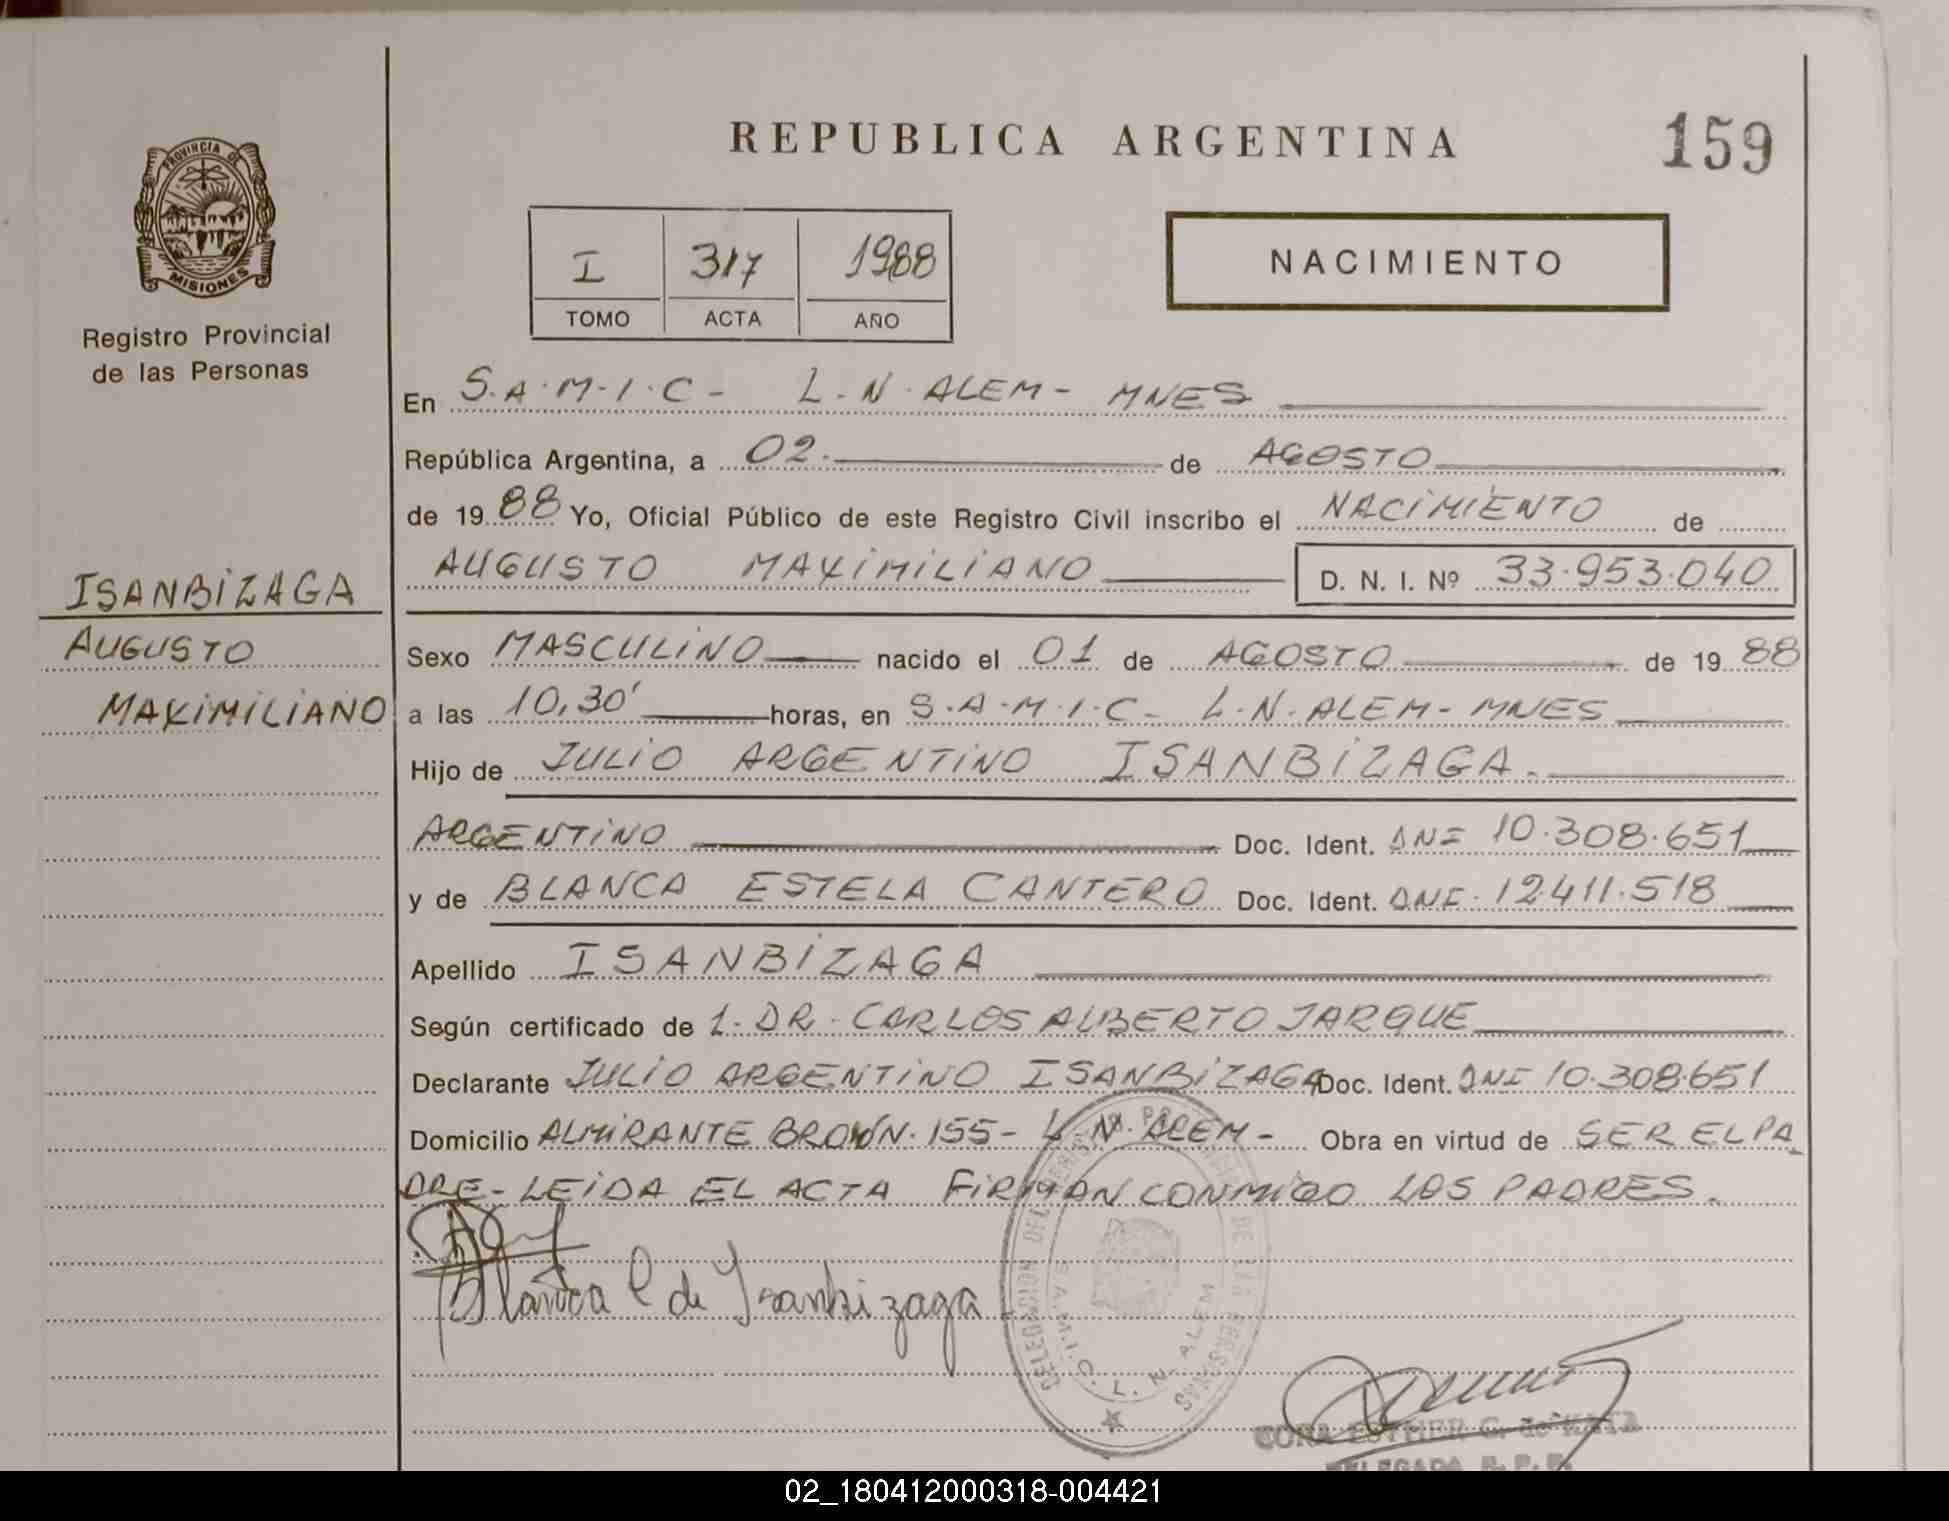 REPUBLICA ARGENTINA
159
PROVINCIA DE
MISIONES
Registro Provincial
de las Personas
I 317 1988
TOMO ACTA AÑO
NACIMIENTO
En S.A.M.I.C- L.N.ALEM- MNES
República Argentina, a 02. de AGOSTO
de 19 88 Yo, Oficial Público de este Registro Civil inscribo el NACIMIENTO de
AUGUSTO MAXIMILIANO D. N. I. Nº 33.953.040
ISANBIZAGA
AUGUSTO
MAXIMILIANO
Sexo MASCULINO nacido el 01 de AGOSTO de 19 88
a las 10,30' horas, en S.A.M.I.C- L.N.ALEM- MNES
Hijo de JULIO ARGENTINO ISANBIZAGA.
ARGENTINO Doc. Ident. DNI 10.308.651
y de BLANCA ESTELA CANTERO Doc. Ident. DNI. 12.411.518
Apellido ISANBIZAGA
Según certificado de 1- DR. CARLOS ALBERTO JARQUE
Declarante JULIO ARGENTINO ISANBIZAGA Doc. Ident. DNI 10.308.651
Domicilio ALMIRANTE BROWN. 155- L.N. ALEM- Obra en virtud de SER EL PA
DRE- LEIDA EL ACTA FIRMAN CONMIGO LOS PADRES.
Blanca C de Isanbizaga
DELEGACION DEL DE LAS PERSONAS
S.A.M.I.C. L. N. ALEM
CORA ESTHER G. de
DELEGADA R. P. P.
02_180412000318-004421